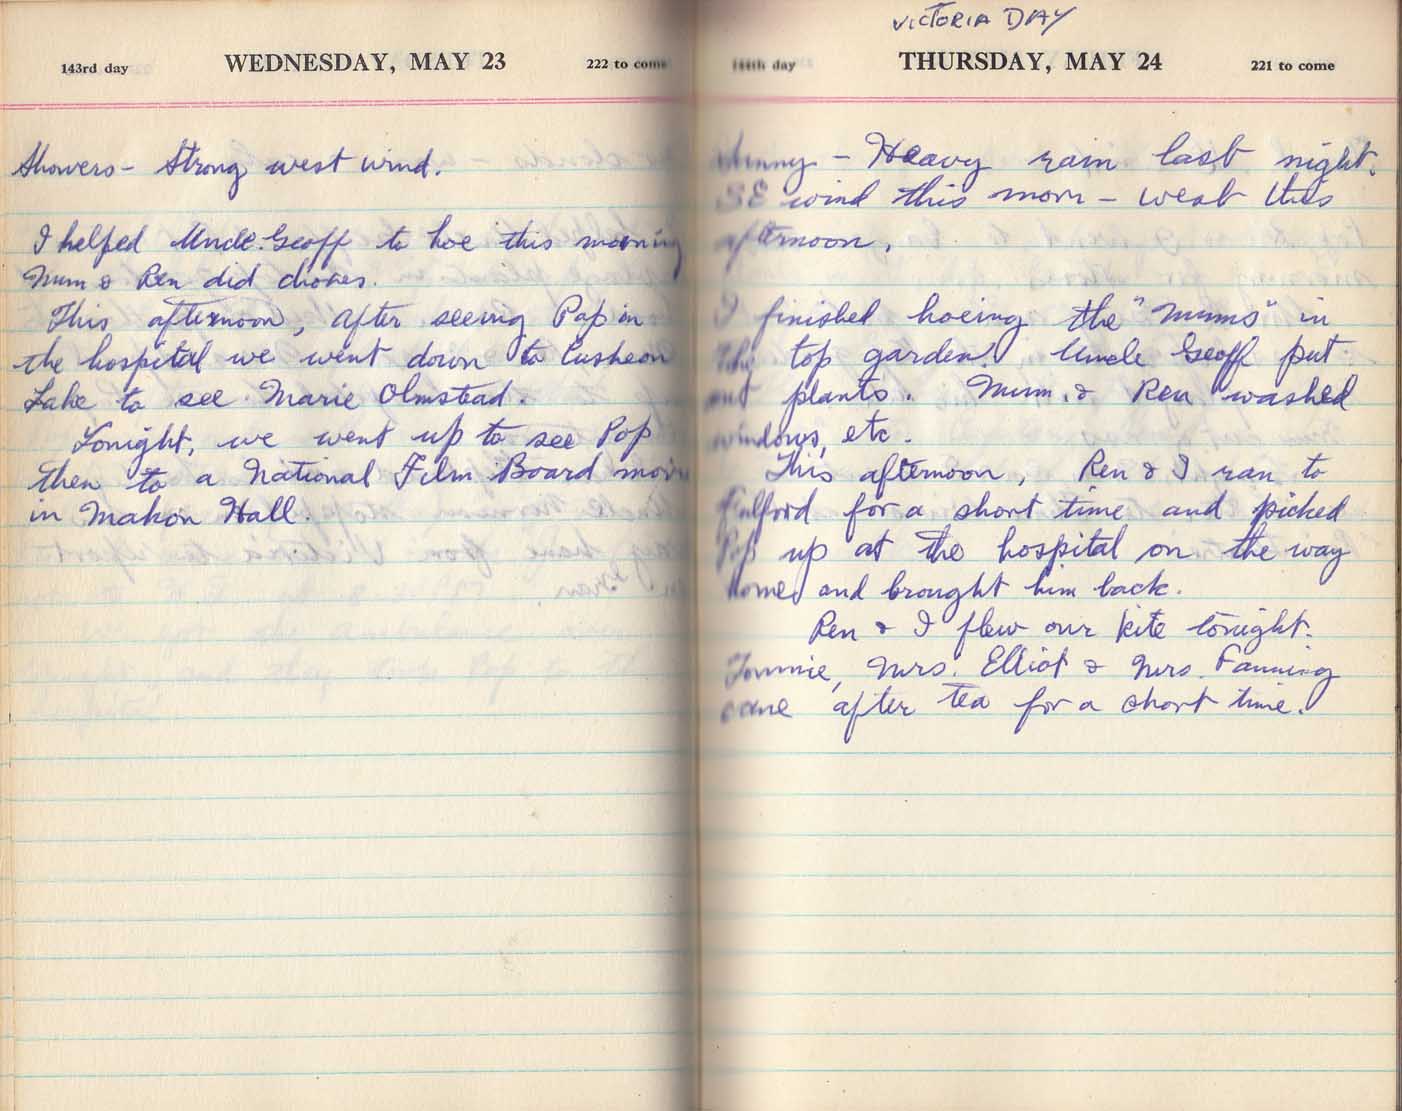 143rd day WEDNESDAY, MAY 23 222 to come
Showers - Strong west wind.
I helped Uncle Geoff to hoe this morning
Mum & Ren did chores.
This afternoon, after seeing Pop in
the hospital we went down to Cusheon
Lake to see Marie Olmstead.
Tonight, we went up to see Pop
then to a National Film Board movie
in Mahon Hall.
VICTORIA DAY
144th day THURSDAY, MAY 24 221 to come
Sunny - Heavy rain last night.
SE wind this morn - west this
afternoon.
I finished hoeing the "Mums" in
the top garden. Uncle Geoff put
out plants. Mum & Ren washed
windows, etc.
This afternoon, Ren & I ran to
Fulford for a short time and picked
Pop up at the hospital on the way
home and brought him back.
Ren & I flew our kite tonight.
Tommie, Mrs. Elliot & Mrs. Fanning
came after tea for a short time.